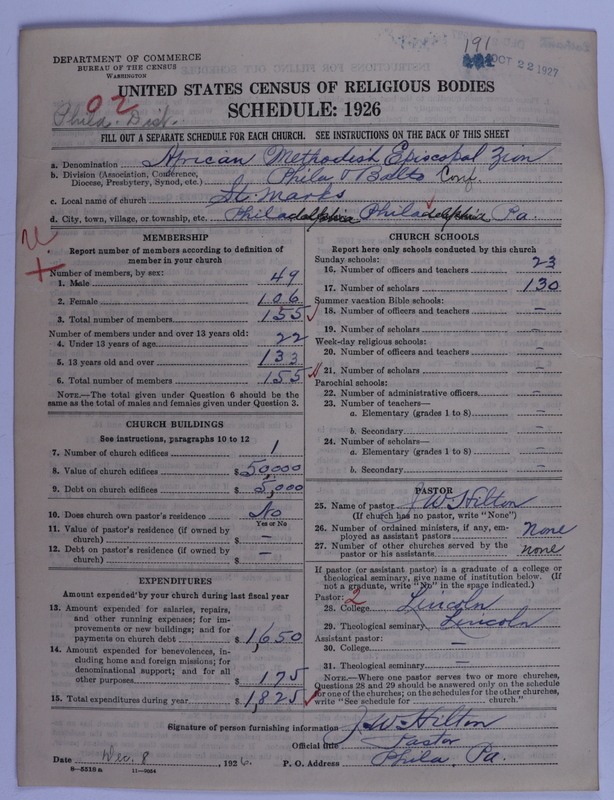 DEPARTMENT OF COMMERCE
BUREAU OF THE CENSUS
WASHINGTON
191
OCT 22 1927
UNITED STATES CENSUS OF RELIGIOUS BODIES
SCHEDULE: 1926
02
Phila. Dist.
FILL OUT A SEPARATE SCHEDULE FOR EACH CHURCH. SEE INSTRUCTIONS ON THE BACK OF THIS SHEET
a. Denomination African Methodish Episcopal Zion
b. Division (Association, Conference, Diocese, Presbytery, Synod, etc.) Phila & Balto Conf.
c. Local name of church St. Marks
d. City, town, village, or township, etc. Philadelphia Philadelphia Pa.
MEMBERSHIP
Report number of members according to definition of member in your church
Number of members, by sex:
1. Male 49
2. Female 106
3. Total number of members 155
Number of members under and over 13 years old:
4. Under 13 years of age 22
5. 13 years old and over 133
6. Total number of members 155
NOTE.—The total given under Question 6 should be the same as the total of males and females given under Question 3.
CHURCH BUILDINGS
See instructions, paragraphs 10 to 12
7. Number of church edifices 1
8. Value of church edifices $50,000
9. Debt on church edifices $5,000
10. Does church own pastor's residence No
Yes or No
11. Value of pastor's residence (if owned by church) $ —
12. Debt on pastor's residence (if owned by church) $ —
EXPENDITURES
Amount expended by your church during last fiscal year
13. Amount expended for salaries, repairs, and other running expenses; for improvements or new buildings; and for payments on church debt $1,650
14. Amount expended for benevolences, including home and foreign missions; for denominational support; and for all other purposes $175
15. Total expenditures during year $1,825
CHURCH SCHOOLS
Report here only schools conducted by this church
Sunday schools:
16. Number of officers and teachers 23
17. Number of scholars 130
Summer vacation Bible schools:
18. Number of officers and teachers —
19. Number of scholars —
Week-day religious schools:
20. Number of officers and teachers —
21. Number of scholars —
Parochial schools:
22. Number of administrative officers —
23. Number of teachers—
a. Elementary (grades 1 to 8) —
b. Secondary —
24. Number of scholars—
a. Elementary (grades 1 to 8) —
b. Secondary —
PASTOR
25. Name of pastor J W Hilton
(If church has no pastor, write "None")
26. Number of ordained ministers, if any, employed as assistant pastors None
27. Number of other churches served by the pastor or his assistants none
If pastor (or assistant pastor) is a graduate of a college or theological seminary, give name of institution below. (If not a graduate, write "No" in the space indicated.)
Pastor: 2
28. College Lincoln
29. Theological seminary Lincoln
Assistant pastor:
30. College —
31. Theological seminary —
NOTE.—Where one pastor serves two or more churches, Questions 28 and 29 should be answered only on the schedule for one of the churches; on the schedules for the other churches, write "See schedule for church."
Signature of person furnishing information J. W. Hilton
Official title Pastor
Date Dec. 8, 1926.
P. O. Address Phila. Pa.
8—5518a 11—9054